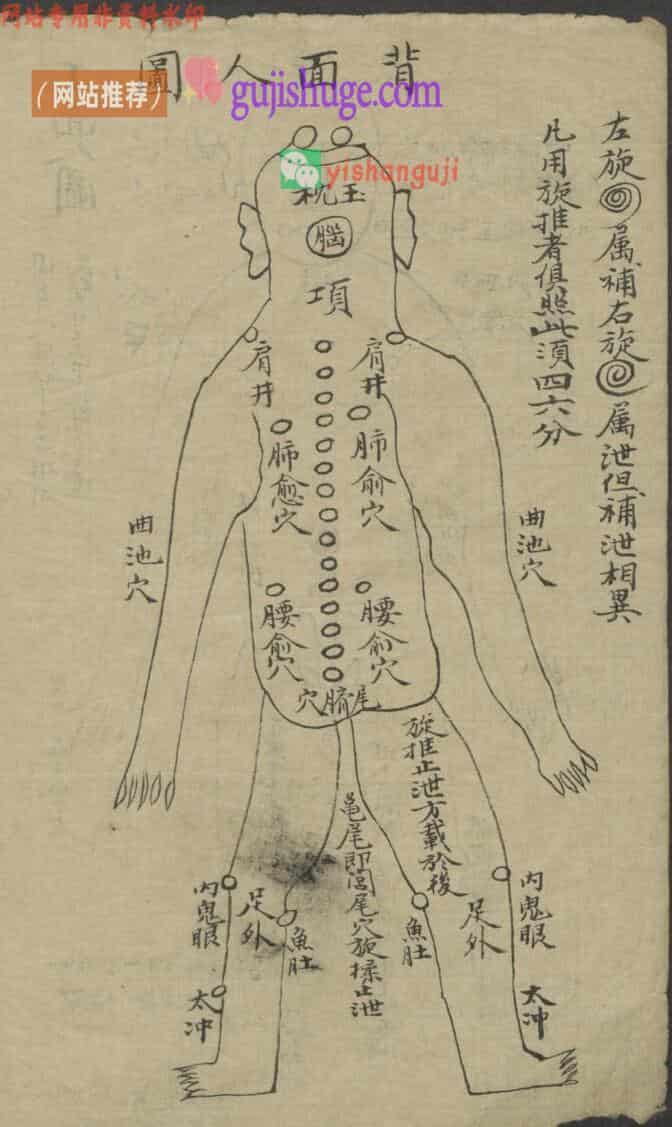 网站专用非资料水印
背面人圖
（网站推荐）
gujishuge.com
yishanguji
左旋属補右旋属泄但補泄相異
凡用旋推者俱照此須四六分
玉枕
腦
項
肩井
肩井
肺俞穴
肺愈穴
曲池穴
曲池穴
腰俞穴
腰俞穴
尾臍穴
旋推止泄方載於後
龟尾即閭尾穴旋揉止泄
内鬼眼
足外
魚肚
魚肚
足外
内鬼眼
太冲
太冲